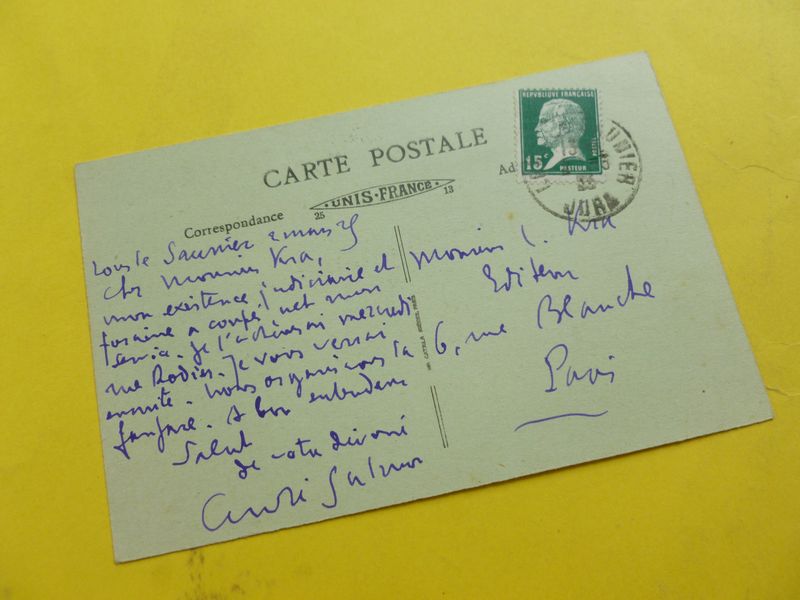 CARTE POSTALE
UNIS-FRANCE
25
13
Correspondance
Ad
REPUBLIQUE FRANÇAISE
15c
POSTES
PASTEUR
UNIER
JURA
Lons le Saunier 2 mars 25
Cher Monsieur Kra,
mon existence judiciaire et
foraine a coupé net mon
service. Je l'achèverai mercredi
rue Rodier. Je vous verrai
ensuite. nous organiserons la
fanfare. A bon entendeur
Salut
de votre dévoué
André Salmon
Monsieur L. Kra
Editeur
6, rue Blanche
Paris